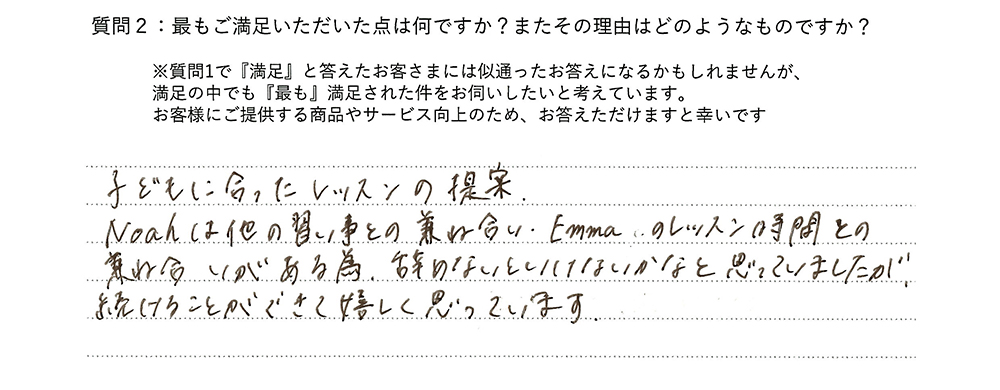 質問２：最もご満足いただいた点は何ですか？またその理由はどのようなものですか？
※質問1で『満足』と答えたお客さまには似通ったお答えになるかもしれませんが、
満足の中でも『最も』満足された件をお伺いしたいと考えています。
お客様にご提供する商品やサービス向上のため、お答えただけますと幸いです
子どもに合ったレッスンの提案.
Noahは他の習い事との兼ね合い・Emma のレッスン時間との
兼ね合いがある為、辞めないといけないかなと思っていましたが、
続けることができて嬉しく思っています.